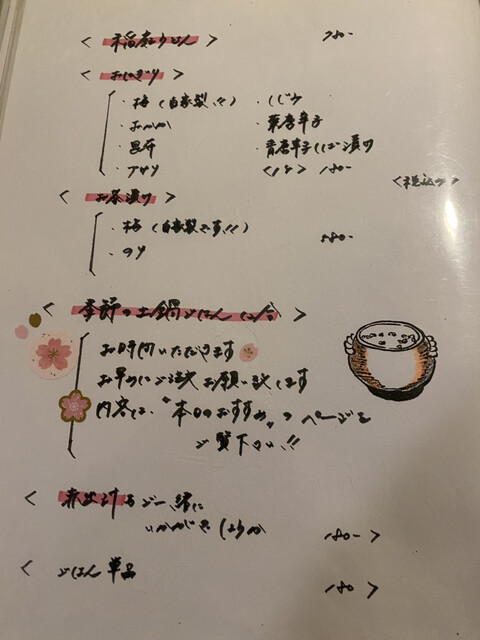 < 稲庭うどん > 780-
< おにぎり >
・梅 (自家製!!) ・しじみ
・おかか ・葉唐辛子
・昆布 ・青唐辛子しょうゆ漬け
・アサリ <1ケ> 180-
<税込み>
< お茶漬け >
・梅 (自家製です!!) 580-
・のり
< 季節の土鍋ごはん 一合 >
お時間いただきます
お早めにご注文お願い致します
内容は、"本日のおすすめ"のページを
ご覧下さい!!
< 赤出汁もご一緒に
いかがでしょうか 180- >
< ごはん 単品 180 >